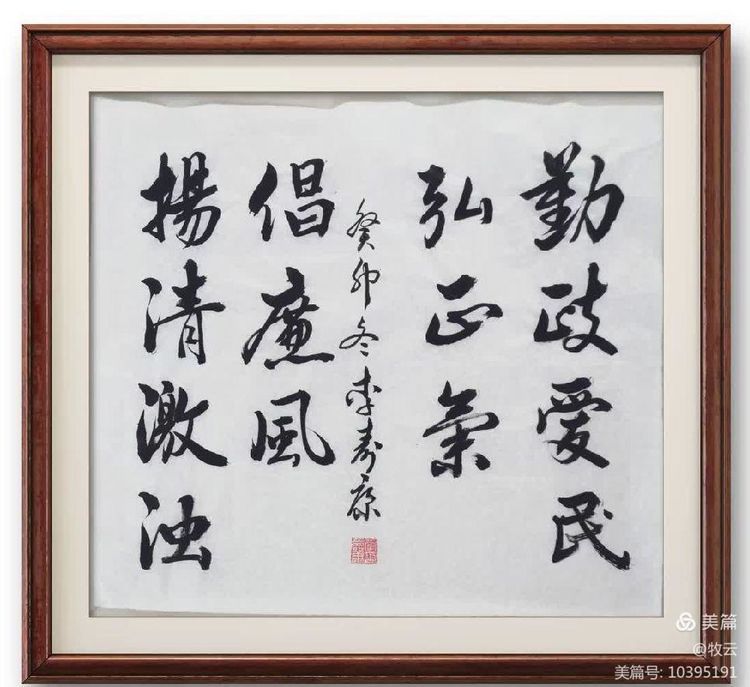 勤政爱民
弘正氣
癸卯冬李寿康
倡廉風
揚清激浊
美篇
@牧云
美篇号: 10395191